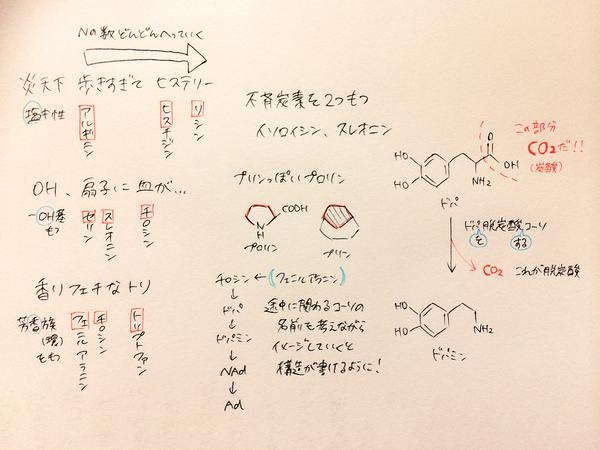 Nの数どんどんへっていく
炎天下 歩きすぎて ヒステリー
塩基性
アルギニン
ヒスチジン
リシン
OH、扇子に血が…
-OH基
もつ
セリン
スレオニン
チロシン
香りフェチなトリ
芳香族
(環)
もつ
フェニルアラニン
チロシン
トリプトファン
不斉炭素を2つもつ
イソロイシン、スレオニン
プリンっぽいプロリン
COOH
N
H
プロリン
プリン
チロシン ← (フェニルアラニン)
↓
ドパ
↓
ドパミン
↓
NAd
↓
Ad
途中に関わるコーソの
名前も考えながら
イメージしていくと
構造が書けるように!
HO
HO
O
OH
NH2
ドパ
この部分
CO2だ!!
(炭酸)
ドパ脱炭酸コーソ
を
する
CO2 これが脱炭酸
HO
HO
NH2
ドパミン